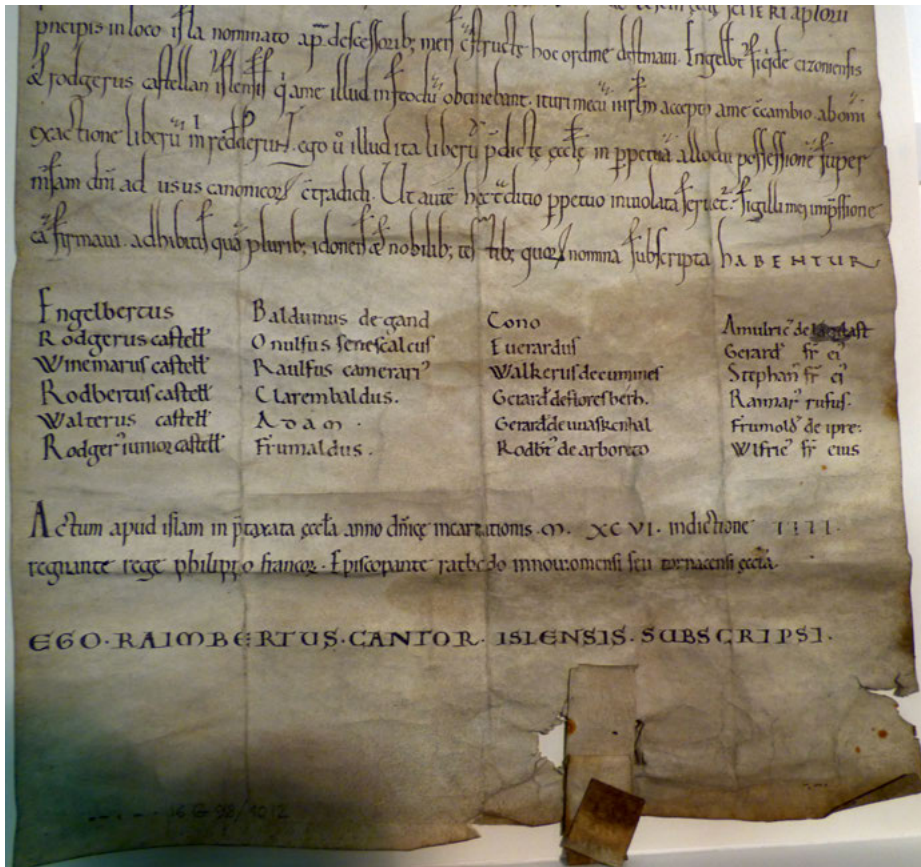 pncipis in loco isla nominato ap descessorib; meis cstructe hoc ordine destinaui. Engelbt siqide cizoniensis
& rodgerus castellan islensis q ame illud in feodu obtinebant. ituri mecu ihrlm accepto ame ccambio ab omi
exactione liberu m reddiderunt. ego u illud ita liberu pdicte eccle in ppetua allodii possessione super
mensam dni ad usus canonicor ctradidi. Ut aute hec cditio ppetuo inuiolata seruet. sigilli mei impssione
ea firmaui. adhibitis qua plurib; idoneis & nobilib; testib; quor nomina subscripta HABENTUR
Engelbertus
Rodgerus castell
Winemarus castell
Rodbertus castell
Walterus castell
Rodger' iunior castell
Balduinus de gand
Onulfus senescalcus
Raulfus camerari'
Clarembaldus.
Adam.
Frumaldus.
Cono
Euerardus
Walkerus de cummines
Gerard' de floresberh.
Gerard' de uuaskenhal
Rodbt' de arboreto
Amulric' de
Gerard' fr ei'
Stephan' fr ei'
Rainar' rufus.
Frumold' de ipre:
Wlfric' fr eius
Actum apud islam in ptaxata eccla anno dnice incarnationis. M. XCVI. indictione IIII.
regnante rege philippo francor. Episcopante ratbodo in nouiomensi seu tornacensi eccla.
EGO·RAIMBERTUS·CANTOR·ISLENSIS·SUBSCRIPSI.
16 G 98/1012